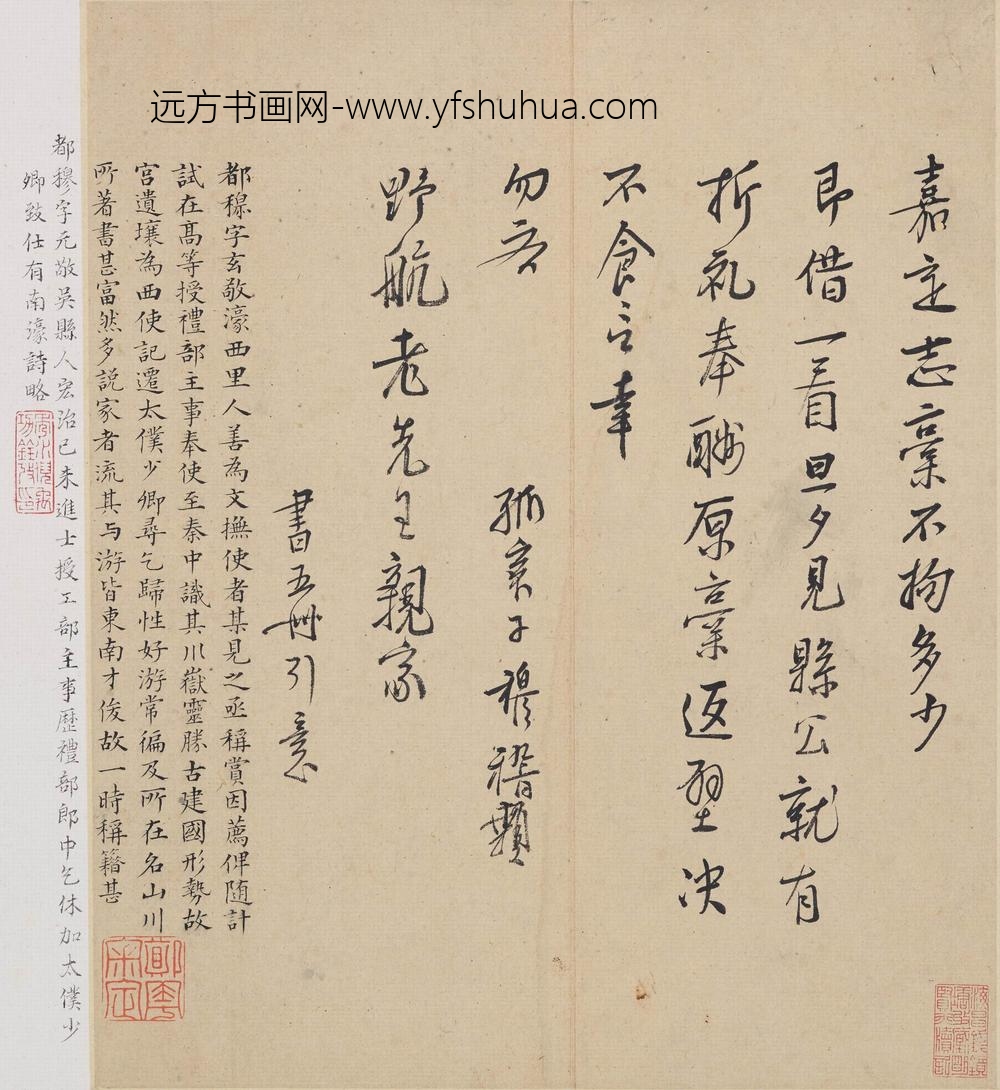 远方书画网-www.yfshuhua.com
嘉定志稾不拘多少
即借一看旦夕見縣公就有
折礼奉酬原稾返璧决
不食言幸
勿吝
孤哀子穆稽顙
野航老先生親家
書五冊引意
都穆字玄敬濠西里人善為文撫使者某見之亟稱賞因薦俾随計
試在髙等授禮部主事奉使至秦中識其川嶽靈勝古建國形勢故
宮遺壤為西使記遷太僕少卿尋乞歸性好游常徧及所在名山川
所著書甚富然多説家者流其与游皆東南才俊故一時稱籍甚
都穆字元敬吳縣人宏治己未進士授工部主事歷禮部郎中乞休加太僕少
卿致仕有南濠詩略